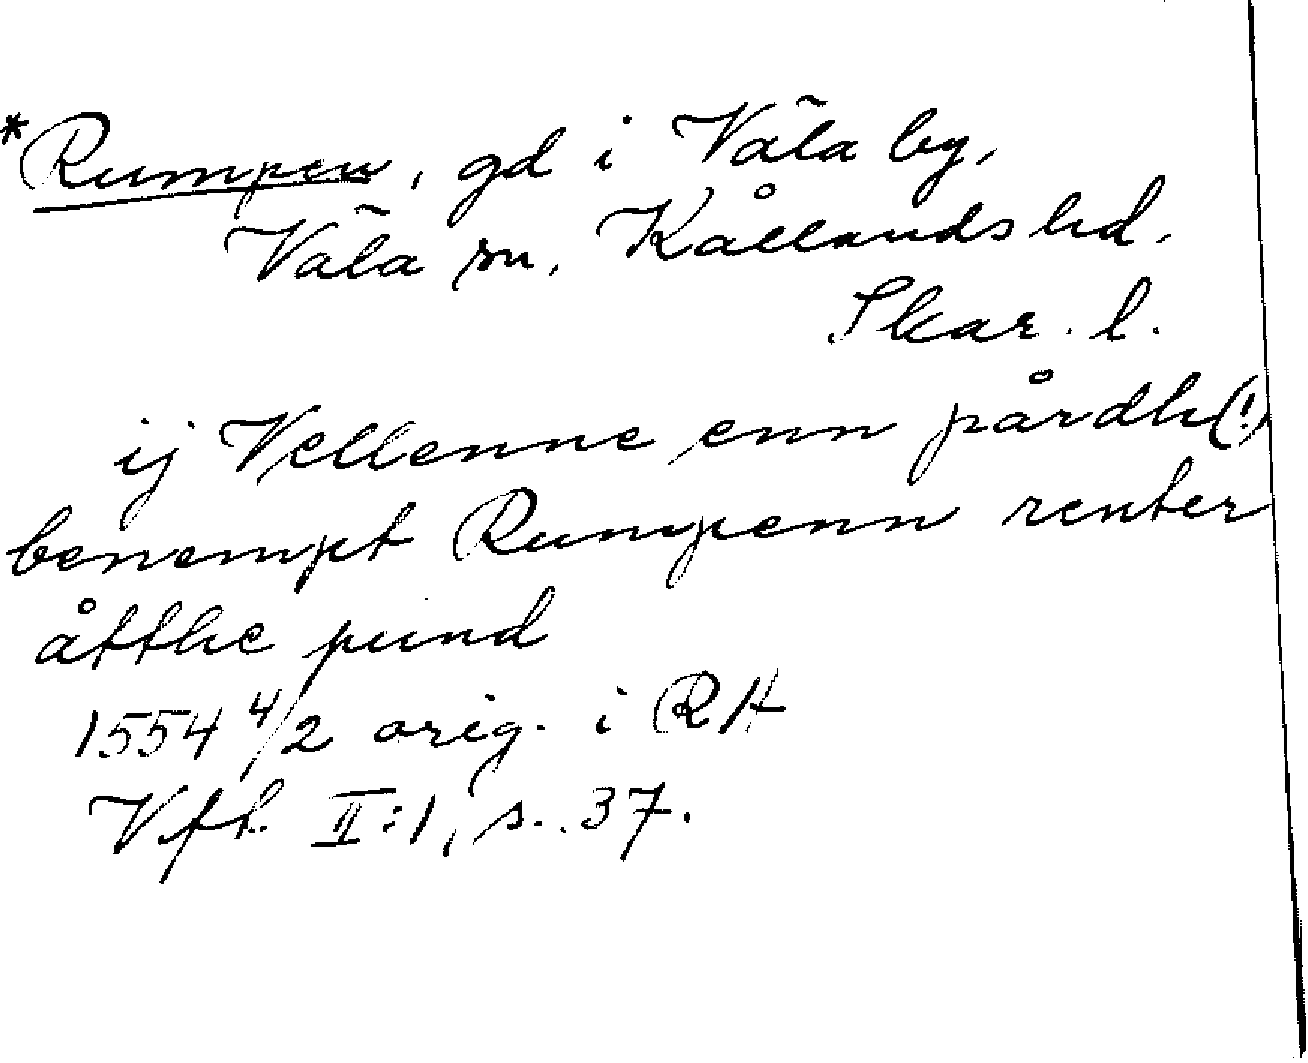 *Rumpen, gd i Väla by,
Väla sn, Kållands hd.
Skar. l.
ij Vellenne enn pårdh(!)
benempt Rumpenn renter
åtthe pund
1554 4/2 orig. i RH
Vfh. II:1, s. 37.